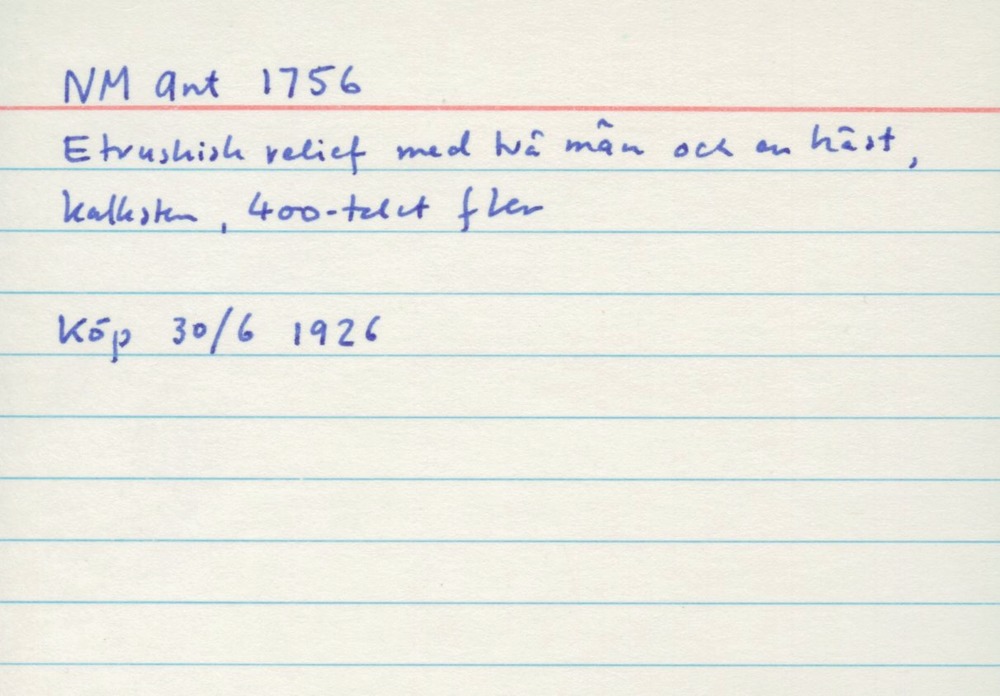 NM Ant 1756
Etruskisk relief med två män och en häst,
kalksten, 400-talet f Kr
Köp 30/6 1926